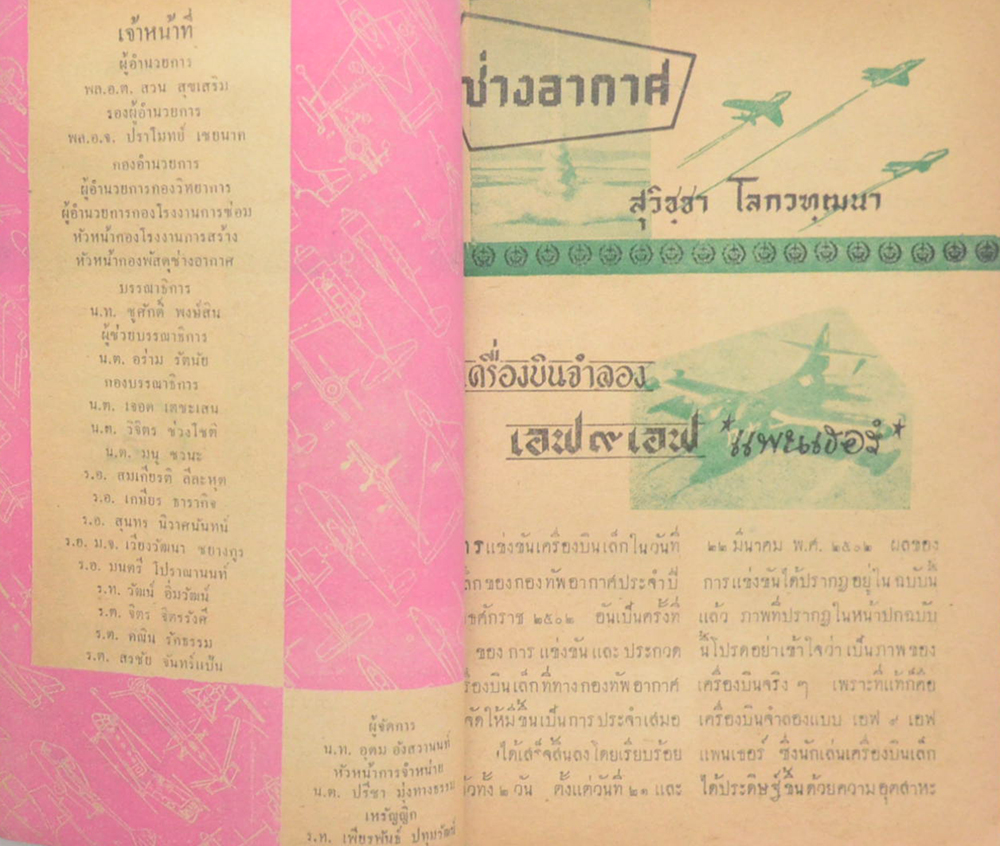 เจ้าหน้าที่
ผู้อำนวยการ
พล.อ.ต. สวน สุขเสริม
รองผู้อำนวยการ
พล.อ.จ. ปราโมทย์ เชยนาค
กองอำนวยการ
ผู้อำนวยการกองวิทยาการ
ผู้อำนวยการกองโรงงานการซ่อม
หัวหน้ากองโรงงานการสร้าง
หัวหน้ากองพัสดุช่างอากาศ
บรรณาธิการ
น.ท. ชูศักดิ์ พงษ์สิน
ผู้ช่วยบรรณาธิการ
น.ต. อร่าม รัตนัย
กองบรรณาธิการ
น.ต. เจอด เตชะเสน
น.ต. วิจิตร ช่วงโชติ
น.ต. มนู ชวนะ
ร.อ. สมเกียรติ ลีละหุต
ร.อ. เกษียร ธารากิจ
ร.อ. สุนทร นิวาศนันทน์
ร.อ. ม.จ. เวียงวัฒนา ชยางกูร
ร.อ. มนตรี โปราณานนท์
ร.ท. วัฒน์ อิ่มวัฒน์
ร.ต. จิตร จิตรรังศี
ร.ต. คณิน รักธรรม
ร.ต. สรชัย จันทร์แป้น
ผู้จัดการ
น.ท. อุดม อังสวานนท์
หัวหน้าการจำหน่าย
น.ต. ปรีชา มุ่งทางธรรม
เหรัญญิก
ร.ท. เพียรพันธ์ ปทุมวัฒน์
ช่างอากาศ
สุวิชฺชา โลกวทฺฒนา
เครื่องบินจำลอง
เอฟ ๙ เอฟ "แพนเธอร์"
การแข่งขันเครื่องบินเล็กในวันที่
ล็กของกองทัพอากาศประจำปี
ธศักราช ๒๕๐๒ อันเป็นครั้งที่
ของ การ แข่งขัน และ ประกวด
รื่องบินเล็กที่ทางกองทัพอากาศ
จัดให้มีขึ้นเป็นการประจำเสมอ
ได้เสร็จสิ้นลงโดยเรียบร้อย
ตั้งแต่วันที่ ๒๑ และ
๒๒ มีนาคม พ.ศ. ๒๕๐๒ ผลของ
การแข่งขันได้ปรากฏอยู่ในฉบับนี้
แล้ว ภาพที่ปรากฏในหน้าปกฉบับ
นี้โปรดอย่าเข้าใจว่าเป็นภาพของ
เครื่องบินจริง ๆ เพราะที่แท้ก็คือ
เครื่องบินจำลองแบบ เอฟ ๙ เอฟ
แพนเธอร์ ซึ่งนักเล่นเครื่องบินเล็ก
ได้ประดิษฐ์ขึ้นด้วยความอุตสาหะ